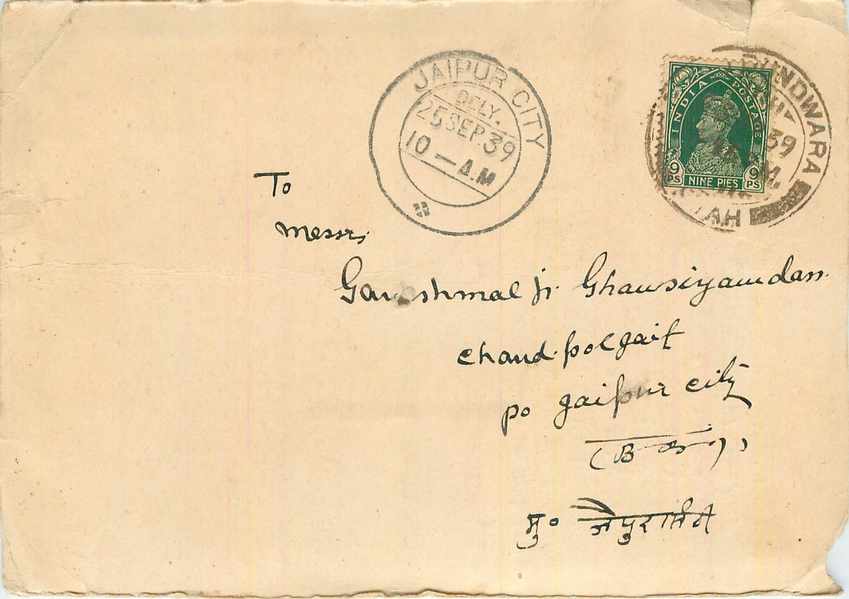 JAIPUR CITY
DELY.
25 SEP. 39
10 - A.M
INDIA POSTAGE
9 PS NINE PIES 9 PS
UNDWARA
39
AH
To
Messrs,
Ganeshmal ji Ghansiyamdan
chandpolgait
po jaipur city
मु० जैपुर सिटी